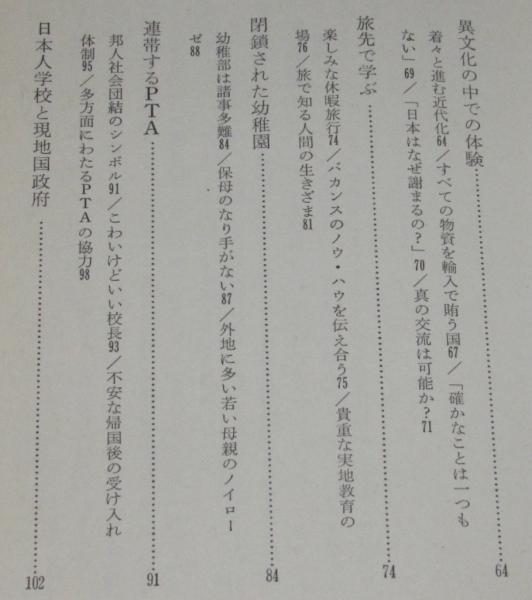 異文化の中での体験……………………64
着々と進む近代化64／すべての物資を輸入で賄う国67／「確かなことは一つも
ない」69／「日本はなぜ謝まるの？」70／真の交流は可能か？71
旅先で学ぶ……………………74
楽しみな休暇旅行74／バカンスのノウ・ハウを伝え合う75／貴重な実地教育の
場76／旅で知る人間の生きざま81
閉鎖された幼稚園……………………84
幼稚部は諸事多難84／保母のなり手がない87／外地に多い若い母親のノイロー
ゼ88
連帯するPTA……………………91
邦人社会団結のシンボル91／こわいけどいい校長93／不安な帰国後の受け入れ
体制95／多方面にわたるPTAの協力98
日本人学校と現地国政府……………………102